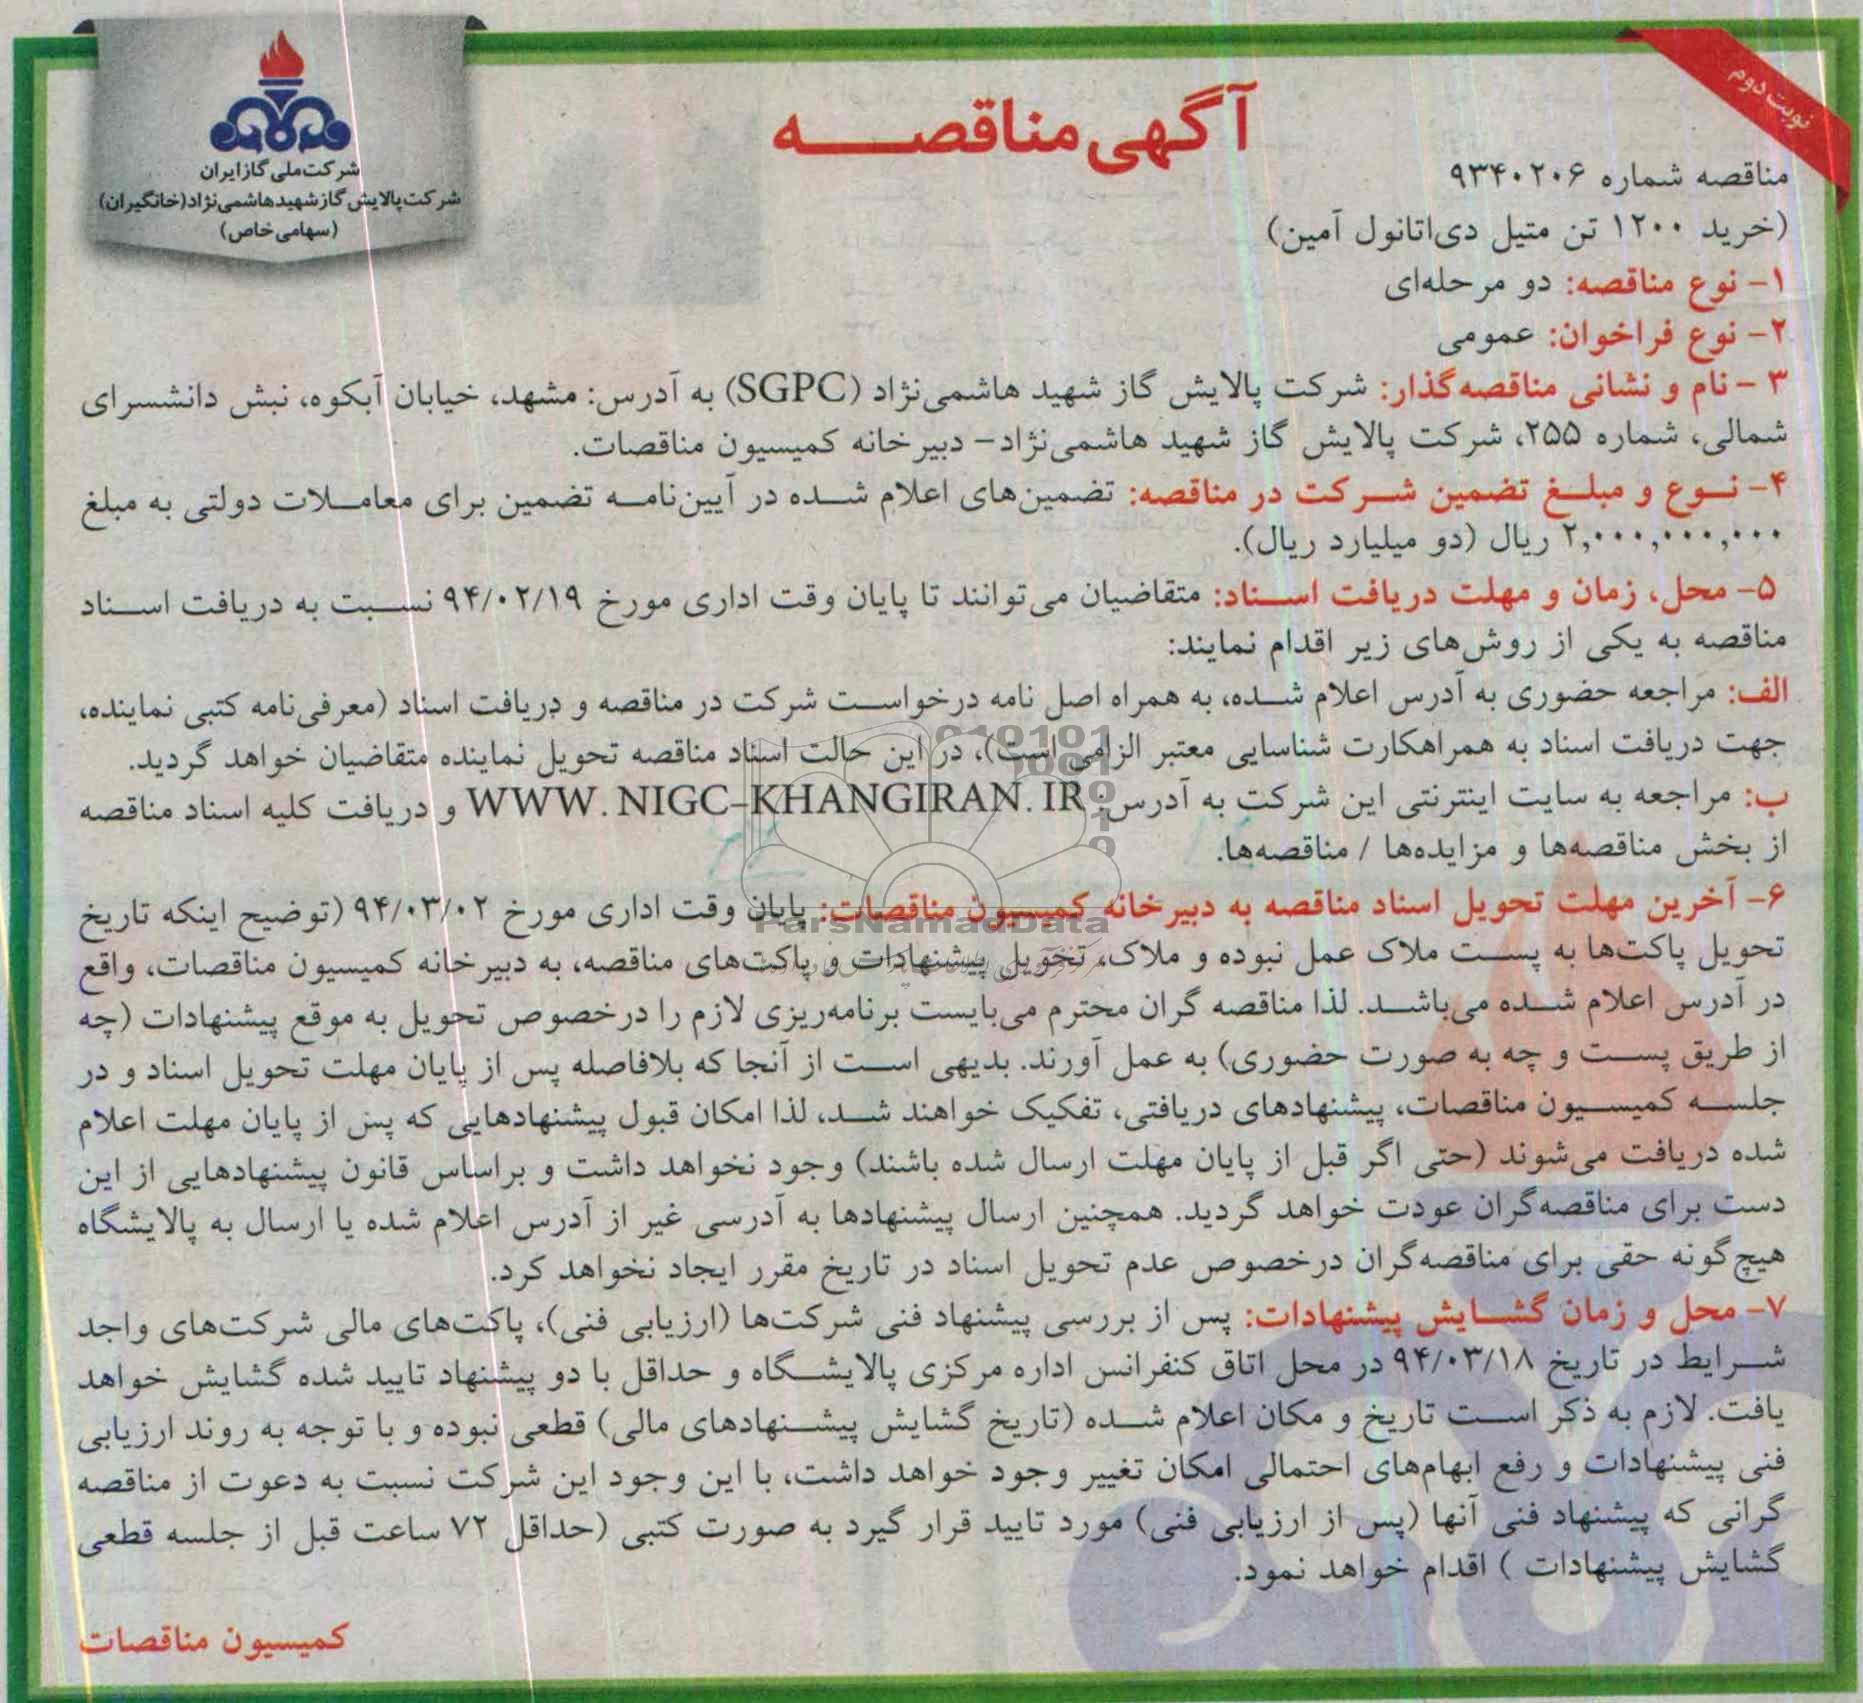 نوبت دوم
شرکت ملی گاز ایران
شرکت پالایش گاز شهید هاشمی نژاد (خانگیران)
(سهامی خاص)
آگهی مناقصه
مناقصه شماره ۹۳۴۰۲۰۶
(خرید ۱۲۰۰ تن متیل دی‌اتانول آمین)
۱- نوع مناقصه: دو مرحله‌ای
۲- نوع فراخوان: عمومی
۳ - نام و نشانی مناقصه‌گذار: شرکت پالایش گاز شهید هاشمی‌نژاد (SGPC) به آدرس: مشهد، خیابان آبکوه، نبش دانشسرای
شمالی، شماره ۲۵۵، شرکت پالایش گاز شهید هاشمی‌نژاد- دبیرخانه کمیسیون مناقصات.
۴- نوع و مبلغ تضمین شرکت در مناقصه: تضمین‌های اعلام شده در آیین‌نامه تضمین برای معاملات دولتی به مبلغ
۲,۰۰۰,۰۰۰,۰۰۰ ریال (دو میلیارد ریال).
۵- محل، زمان و مهلت دریافت اسناد: متقاضیان می‌توانند تا پایان وقت اداری مورخ ۹۴/۰۲/۱۹ نسبت به دریافت اسناد
مناقصه به یکی از روش‌های زیر اقدام نمایند:
الف: مراجعه حضوری به آدرس اعلام شده، به همراه اصل نامه درخواست شرکت در مناقصه و دریافت اسناد (معرفی‌نامه کتبی نماینده،
جهت دریافت اسناد به همراهکارت شناسایی معتبر الزامی است)، در این حالت اسناد مناقصه تحویل نماینده متقاضیان خواهد گردید.
ب: مراجعه به سایت اینترنتی این شرکت به آدرس: WWW.NIGC-KHANGIRAN.IR و دریافت کلیه اسناد مناقصه
از بخش مناقصه‌ها و مزایده‌ها / مناقصه‌ها.
۶- آخرین مهلت تحویل اسناد مناقصه به دبیرخانه کمیسیون مناقصات: پایان وقت اداری مورخ ۹۴/۰۳/۰۲ (توضیح اینکه تاریخ
تحویل پاکت‌ها به پست ملاک عمل نبوده و ملاک، تحویل پیشنهادات و پاکت‌های مناقصه، به دبیرخانه کمیسیون مناقصات، واقع
در آدرس اعلام شده می‌باشد. لذا مناقصه گران محترم می‌بایست برنامه‌ریزی لازم را درخصوص تحویل به موقع پیشنهادات (چه
از طریق پست و چه به صورت حضوری) به عمل آورند. بدیهی است از آنجا که بلافاصله پس از پایان مهلت تحویل اسناد و در
جلسه کمیسیون مناقصات، پیشنهادهای دریافتی، تفکیک خواهند شد، لذا امکان قبول پیشنهادهایی که پس از پایان مهلت اعلام
شده دریافت می‌شوند (حتی اگر قبل از پایان مهلت ارسال شده باشند) وجود نخواهد داشت و براساس قانون پیشنهادهایی از این
دست برای مناقصه‌گران عودت خواهد گردید. همچنین ارسال پیشنهادها به آدرسی غیر از آدرس اعلام شده یا ارسال به پالایشگاه
هیچ‌گونه حقی برای مناقصه‌گران درخصوص عدم تحویل اسناد در تاریخ مقرر ایجاد نخواهد کرد.
۷- محل و زمان گشایش پیشنهادات: پس از بررسی پیشنهاد فنی شرکت‌ها (ارزیابی فنی)، پاکت‌های مالی شرکت‌های واجد
شرایط در تاریخ ۹۴/۰۳/۱۸ در محل اتاق کنفرانس اداره مرکزی پالایشگاه و حداقل با دو پیشنهاد تایید شده گشایش خواهد
یافت. لازم به ذکر است تاریخ و مکان اعلام شده (تاریخ گشایش پیشنهادهای مالی) قطعی نبوده و با توجه به روند ارزیابی
فنی پیشنهادات و رفع ابهام‌های احتمالی امکان تغییر وجود خواهد داشت، با این وجود این شرکت نسبت به دعوت از مناقصه
گرانی که پیشنهاد فنی آنها (پس از ارزیابی فنی) مورد تایید قرار گیرد به صورت کتبی (حداقل ۷۲ ساعت قبل از جلسه قطعی
گشایش پیشنهادات ) اقدام خواهد نمود.
کمیسیون مناقصات
ParsNamadData